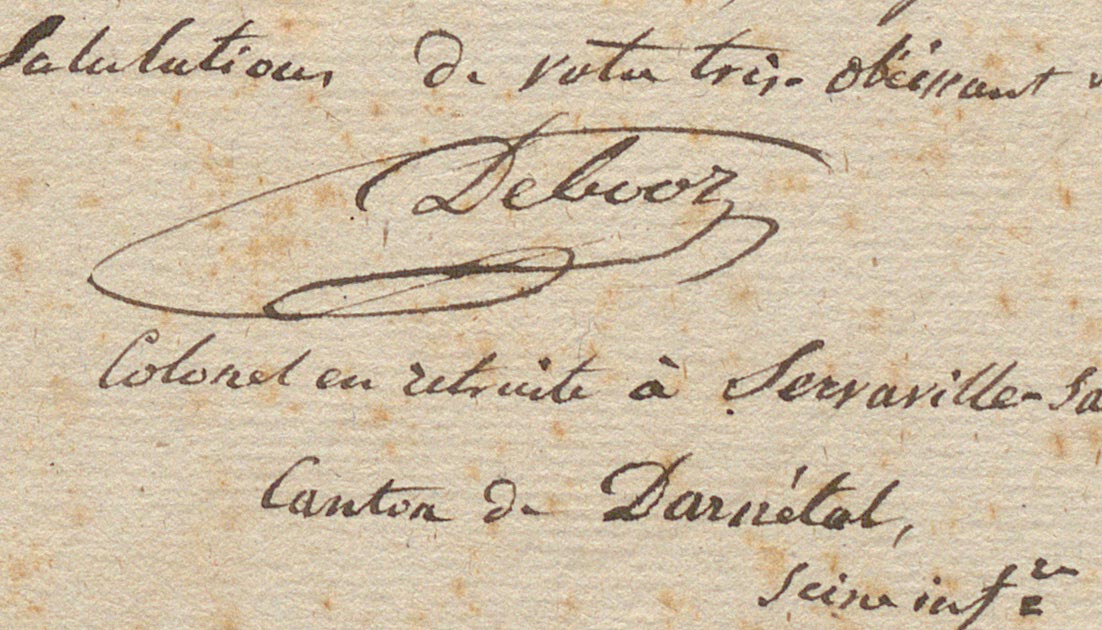 Salutations de votre très-obéissant
Debooz
Colonel en retraite à Servaville-Sa
Canton de Darnétal,
Seine infre